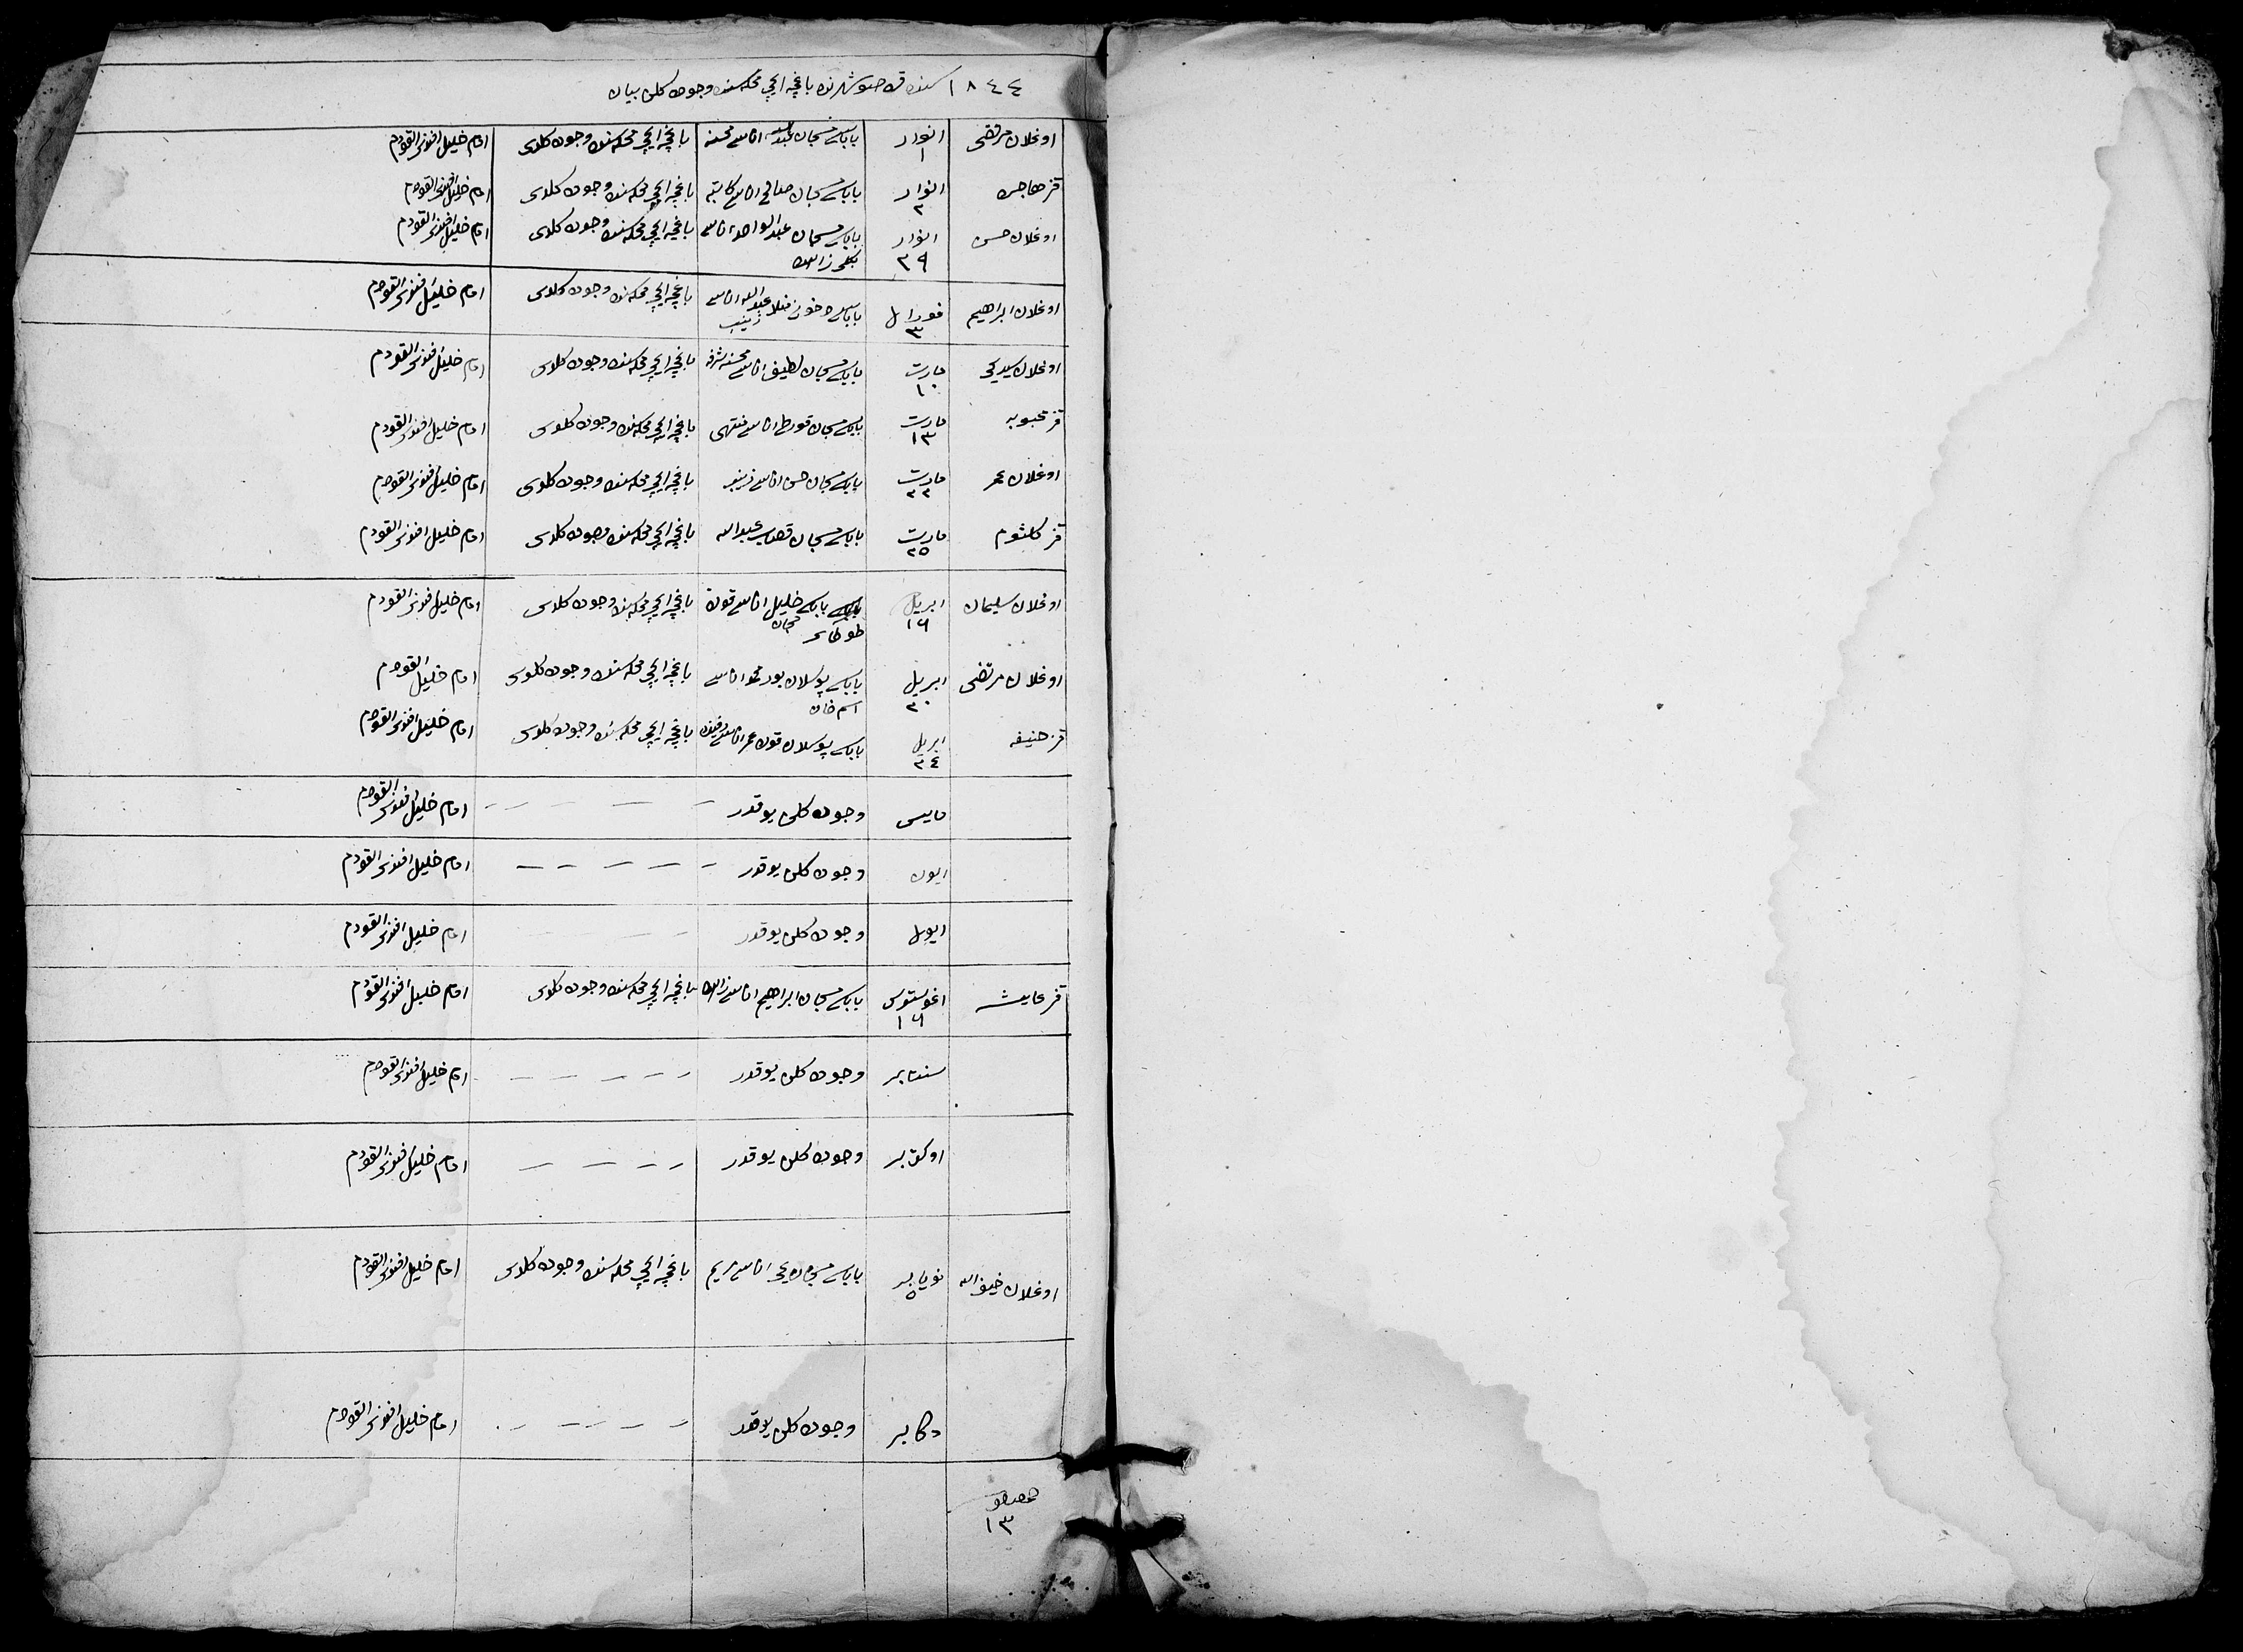 ١٨٤٤ سنه قره صو شهرنده باغچه ایچی محله سنده وجوده کلن بیان
اوغلان مرتضی انوار ١ باباسی مسجان اناسی محسنه باغچه ایچی محله سنده وجوده کلدی امام خلیل افندی القودم
قز هاجره انوار ٢ باباسی مسجان صالح اناسی کاتبه باغچه ایچی محله سنده وجوده کلدی امام خلیل افندی القودم
اوغلان حسن انوار ٢٩ باباسی مسجان عبد الواحد اناسی باغچه ایچی محله سنده وجوده کلدی امام خلیل افندی القودم
اوغلان ابراهیم فورال ٣ باباسی منلا عبد الله اناسی زینب باغچه ایچی محله سنده وجوده کلدی امام خلیل افندی القودم
اوغلان مارت ١٠ باباسی مسجان لطیف اناسی محسنه شرفه باغچه ایچی محله سنده وجوده کلدی امام خلیل افندی القودم
قز محبوبه مارت ١٣ باباسی مسجان اناسی منتهی باغچه ایچی محله سنده وجوده کلدی امام خلیل افندی القودم
اوغلان عمر مارت ٢٢ باباسی مسجان حسن اناسی زینب باغچه ایچی محله سنده وجوده کلدی امام خلیل افندی القودم
قز کلثوم مارت ٢٥ باباسی مسجان قصاب عبد الله باغچه ایچی محله سنده وجوده کلدی امام خلیل افندی القودم
اوغلان سلیمان ابریل ١٦ باباسی خلیل اناسی باغچه ایچی محله سنده وجوده کلدی امام خلیل افندی القودم
اوغلان مرتضی ابریل ٢٠ باباسی پوسلان اناسی اسم خان باغچه ایچی محله سنده وجوده کلدی امام خلیل القودم
قز حنیفه ابریل ٢٤ باباسی پوسلان عمر اناسی باغچه ایچی محله سنده وجوده کلدی امام خلیل افندی القودم
مایس وجوده کلن یوقدر امام خلیل افندی القودم
ایون وجوده کلن یوقدر امام خلیل افندی القودم
ایول وجوده کلن یوقدر امام خلیل افندی القودم
قز عایشه اغوستوس ١٦ باباسی مسجان ابراهیم اناسی باغچه ایچی محله سنده وجوده کلدی امام خلیل افندی القودم
سنتابر وجوده کلن یوقدر امام خلیل افندی القودم
اوکتابر وجوده کلن یوقدر امام خلیل افندی القودم
اوغلان نویابر ٥ باباسی مسجان اناسی مریم باغچه ایچی محله سنده وجوده کلدی امام خلیل افندی القودم
دکابر وجوده کلن یوقدر امام خلیل افندی القودم
١٣